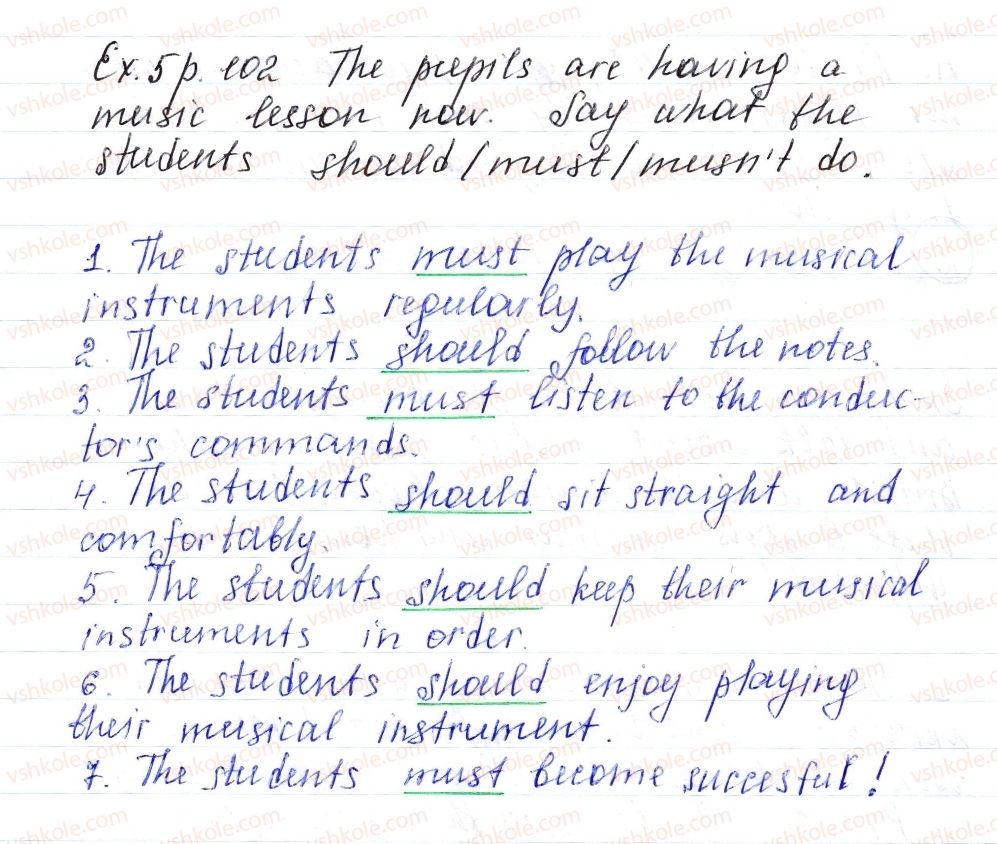 Ex. 5 p. 102 The pupils are having a
music lesson now. Say what the
students should/must/musn't do.
1. The students must play the musical
instruments regularly.
2. The students should follow the notes.
3. The students must listen to the conduc-
tor's commands.
4. The students should sit straight and
comfortably.
5. The students should keep their musical
instruments in order.
6. The students should enjoy playing
their musical instrument.
7. The students must become succesful!